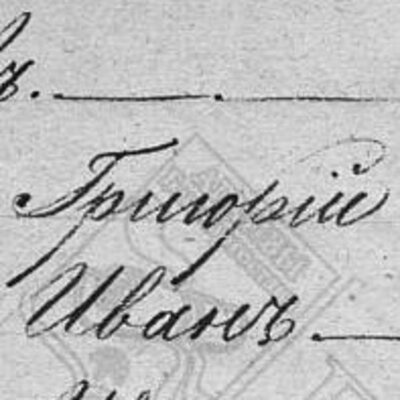 ъ.
Григорій
Иванъ.